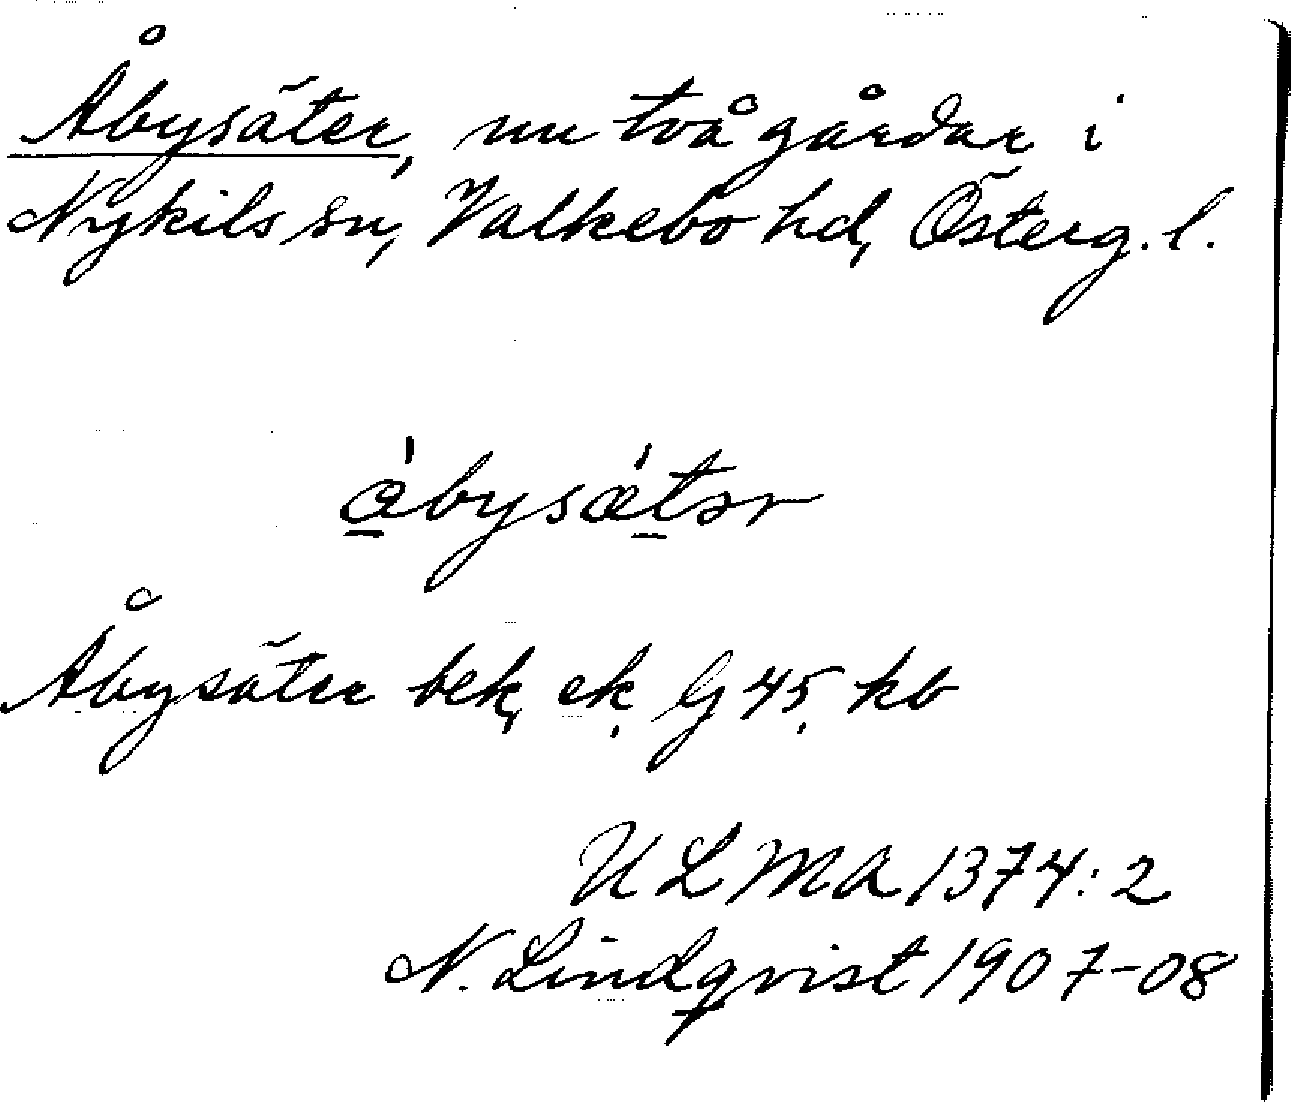 Åbysäter, nu två gårdar i
Nykils sn, Valkebo hd, Österg. l.
åbysætər
Åbysäter bek, ek, G 45, kb
ULMA 1374:2
N. Lindqvist 1907-08